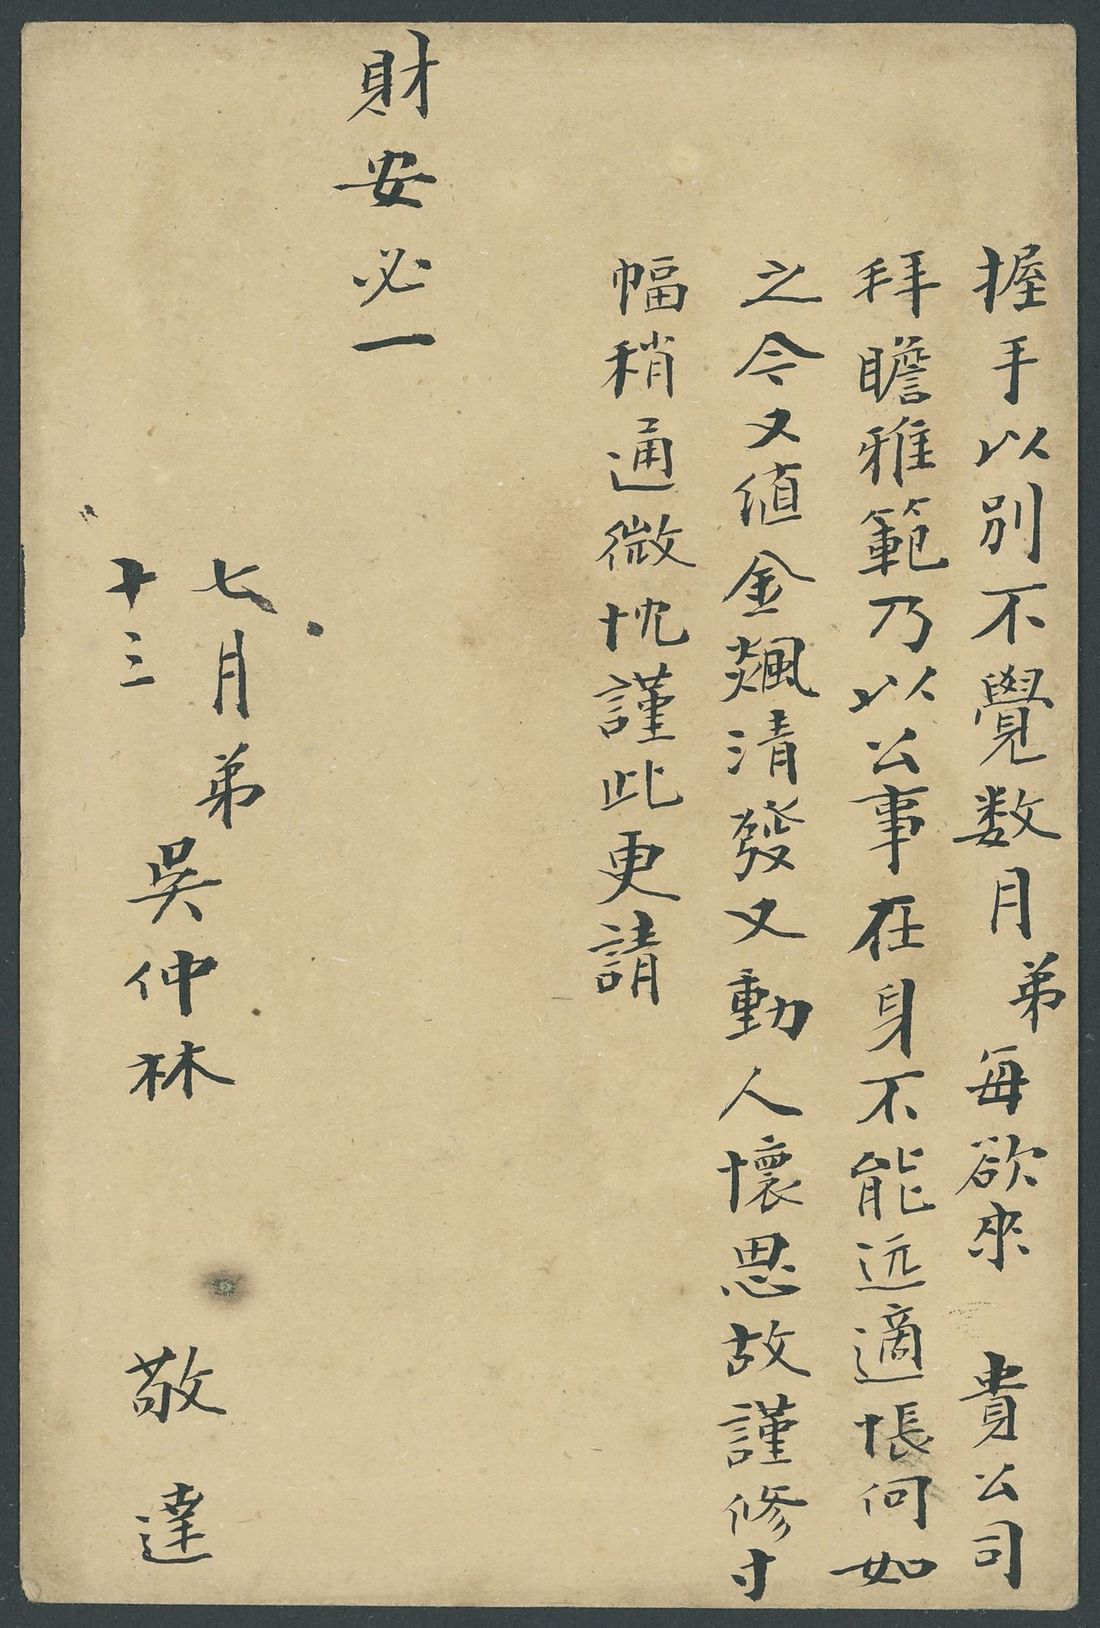 握手以别不覺数月弟每欲來 貴公司
拜瞻雅範乃以公事在身不能远適悵何如
之今又值金飈清發又動人懷思故謹修寸
幅稍通微忱謹此更請
財安必一
七月弟吳仲林 敬達
十三